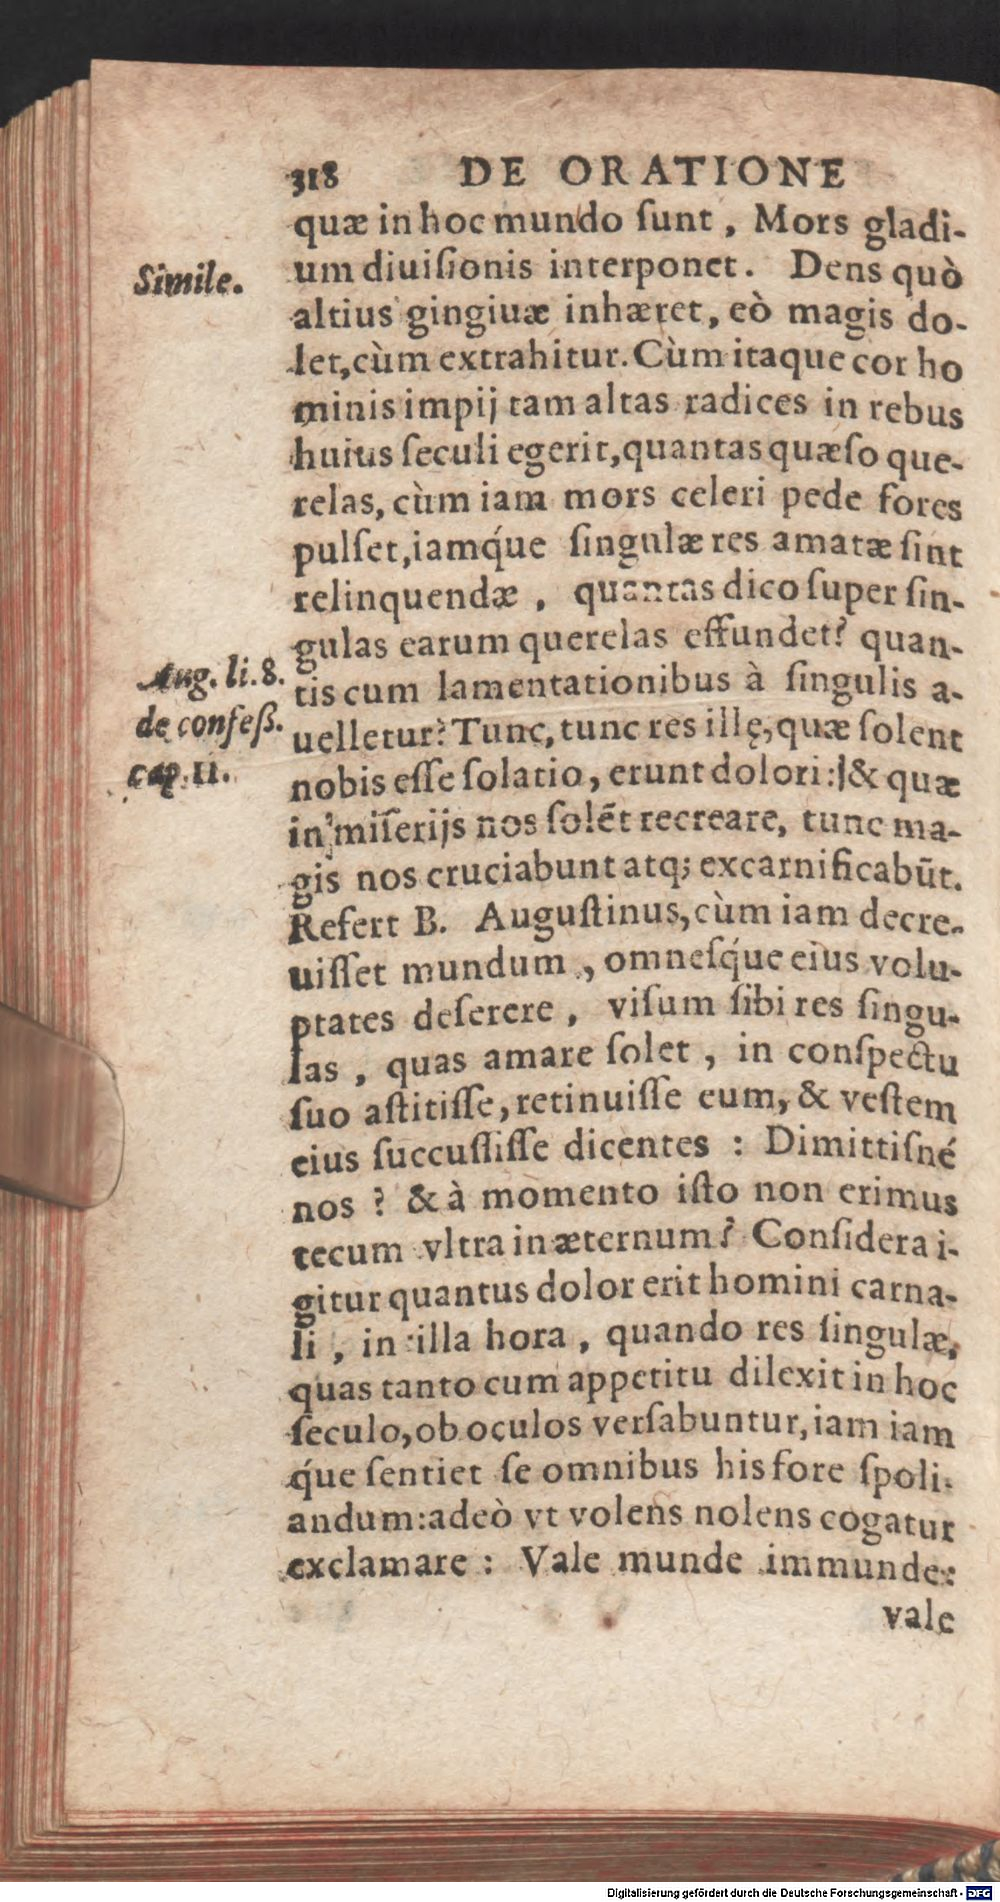 318 DE ORATIONE
quæ in hoc mundo ſunt, Mors gladi-
um diuiſionis interponet. Dens quò
Simile.
altius gingiuæ inhæret, eò magis do-
let, cùm extrahitur. Cùm itaque cor ho
minis impij tam altas radices in rebus
huius ſeculi egerit, quantas quæſo que-
relas, cùm iam mors celeri pede fores
pulſet, iamq́ue ſingulæ res amatæ ſint
relinquendæ, quantas dico ſuper ſin-
gulas earum querelas effundet? quan-
tis cum lamentationibus à ſingulis a-
uelletur? Tunc, tunc res illę, quæ ſolent
nobis eſſe ſolatio, erunt dolori: & quæ
in miſerijs nos ſolẽt recreare, tunc ma-
gis nos cruciabunt atq; excarnificabũt.
Aug. li. 8.
de confeß.
cap. 11.
Refert B. Auguſtinus, cùm iam decre-
uiſſet mundum, omneſq́ue eius volu-
ptates deſerere, viſum ſibi res ſingu-
las, quas amare ſolet, in conſpectu
ſuo aſtitiſſe, retinuiſſe eum, & veſtem
eius ſuccuſſiſſe dicentes: Dimittiſné
nos? & à momento iſto non erimus
tecum vltra in æternum? Conſidera i-
gitur quantus dolor erit homini carna-
li, in illa hora, quando res ſingulæ,
quas tanto cum appetitu dilexit in hoc
ſeculo, ob oculos verſabuntur, iam iam
q́ue ſentiet ſe omnibus his fore ſpoli-
andum: adeò vt volens nolens cogatur
exclamare: Vale munde immunde:
vale
Digitalisierung gefördert durch die Deutsche Forschungsgemeinschaft - DFG